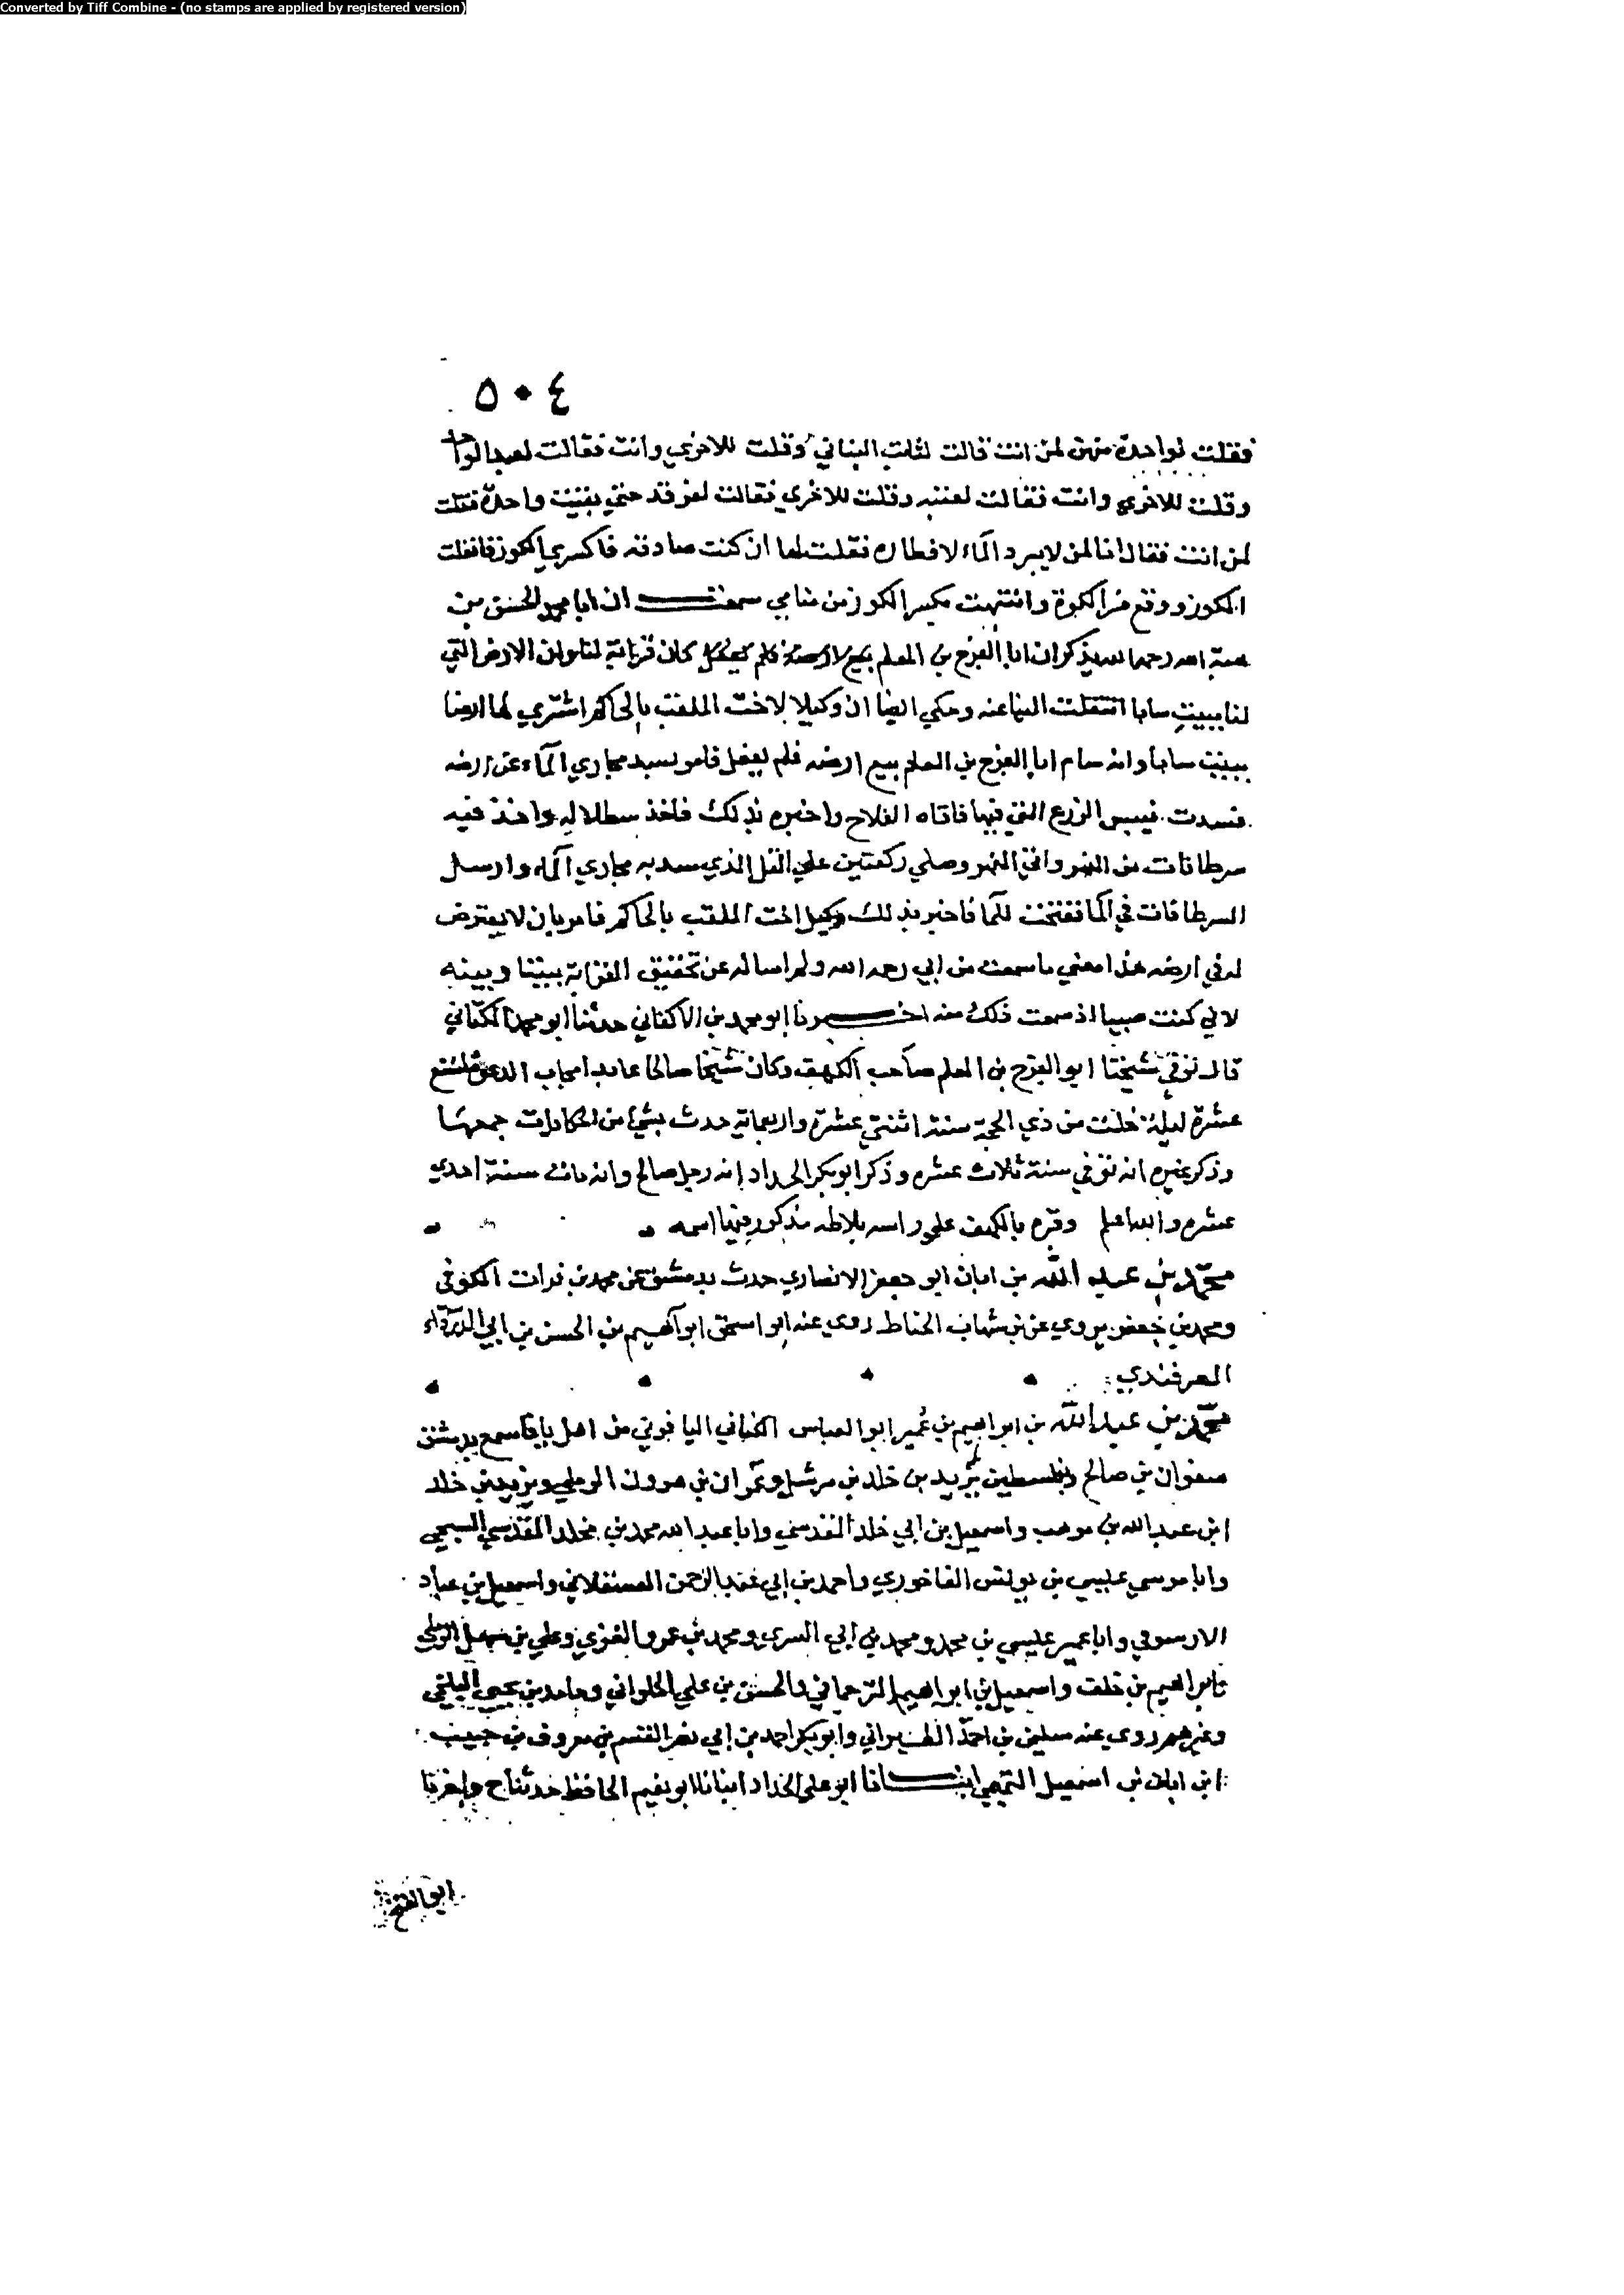 Converted by Tiff Combine - (no stamps are applied by registered version)
٥٠٤
فقلت لواحدة منهن لمن انت قالت لثابت البناني وقلت للاخرى وانت فقالت لعبد الواحد
وقلت للاخرى وانت فقالت لعتبه وقلت للاخرى فقالت لفرقد حتى بقيت واحدة فقلت
لمن انت فقالت انا لمن لا يبرد الماء لافطاره فقلت لها ان كنت صادقه فاكسري الكوز فانفلت
الكوز ووقع من الكوة وانتبهت بكسر الكوز من منامي سمعت ان ابا محمد الحسن بن
هبة الله رحمه الله يذكر ان ابا الفرج بن المعلم كان قرابة لنا وان الارض التي
لنا ببيت سابا انتقلت الينا عنه وحكى ايضا ان وكيلا لاخت الملقب بالحاكم اشترى لها ارضا
ببيت سابا وانه سام ابا الفرج بن المعلم ببيع ارضه فلم يفعل فامر بسد مجاري الماء عن ارضه
فسدت فيبس الزرع التي فيها فاتاه الفلاح واخبره بذلك فاخذ سطلا له واخذ فيه
سرطانات من النهر واتى النهر وصلى ركعتين على التل الذي سد به مجاري الماء وارسل
السرطانات في الما ففتحت للما فاخبر بذلك وكيل اخت الملقب بالحاكم فامر بان لا يعترض
له في ارضه هذا معنى ما سمعت من ابي رحمه الله ولم اساله عن تحقيق القرابة بيننا وبينه
لاني كنت صبيا اذ سمعت ذلك منه اخبرنا ابو محمد بن الاكفاني حدثنا ابو محمد الكتاني
قال توفي شيخنا ابو الفرج بن المعلم صاحب الكهف وكان شيخا صالحا عابدا مجاب الدعوة لتسع
عشرة ليلة خلت من ذي الحجة سنة اثنتي عشرة واربعماية حدث بشيء من الحكايات جمعها
وذكر غيره انه توفي سنة ثلاث عشره وذكر ابو بكر الحداد انه رجل صالح وانه مات سنة احدى
عشره والله اعلم وقبره بالكهف على راسه بلاطه مذكور فيها اسمه
محمد بن عبد الله بن ابان ابو جعفر الانصاري حدث بدمشق عن محمد بن فرات الكوفي
ومحمد بن جعفر يروي عن بن شهاب الحناط روى عنه ابو اسحق ابراهيم بن الحسن بن ابي الدرداء
الصرفندي
محمد بن عبد الله بن ابراهيم بن عمير ابو العباس الكناني اليافوني من اهل يافا سمع بدمشق
صفوان بن صالح وبفلسطين يزيد بن خلد بن مرشل وعمران بن هرون الرملي ويزيد بن خلد
ابن عبد الله بن موهب واسمعيل بن ابي خلد المقدسي وابا عبد الله محمد بن مخلد المقدسي السبحي
وابا موسى عيسى بن يونس الفاخوري واحمد بن ابي عبد الرحمن العسقلاني واسمعيل بن عباد
الارسوفي وابا عمير عيسى بن محمد ومحمد بن ابي السري ومحمد بن عمرو الغزي وعلي بن سهل الرملي
وابراهيم بن خلف واسمعيل بن ابراهيم الترجماني والحسن بن علي الحلواني وحامد بن يحيى البلخي
وغيرهم روى عنه سليمن بن احمد الطبراني وابو بكر احمد بن ابي نصر القسم بن معروف بن حبيب
ابن ابان بن اسمعيل التميمي انبانا ابو علي الحداد انبانا ابو نعيم الحافظ حدثنا ح واخبرنا
ابو الفتح